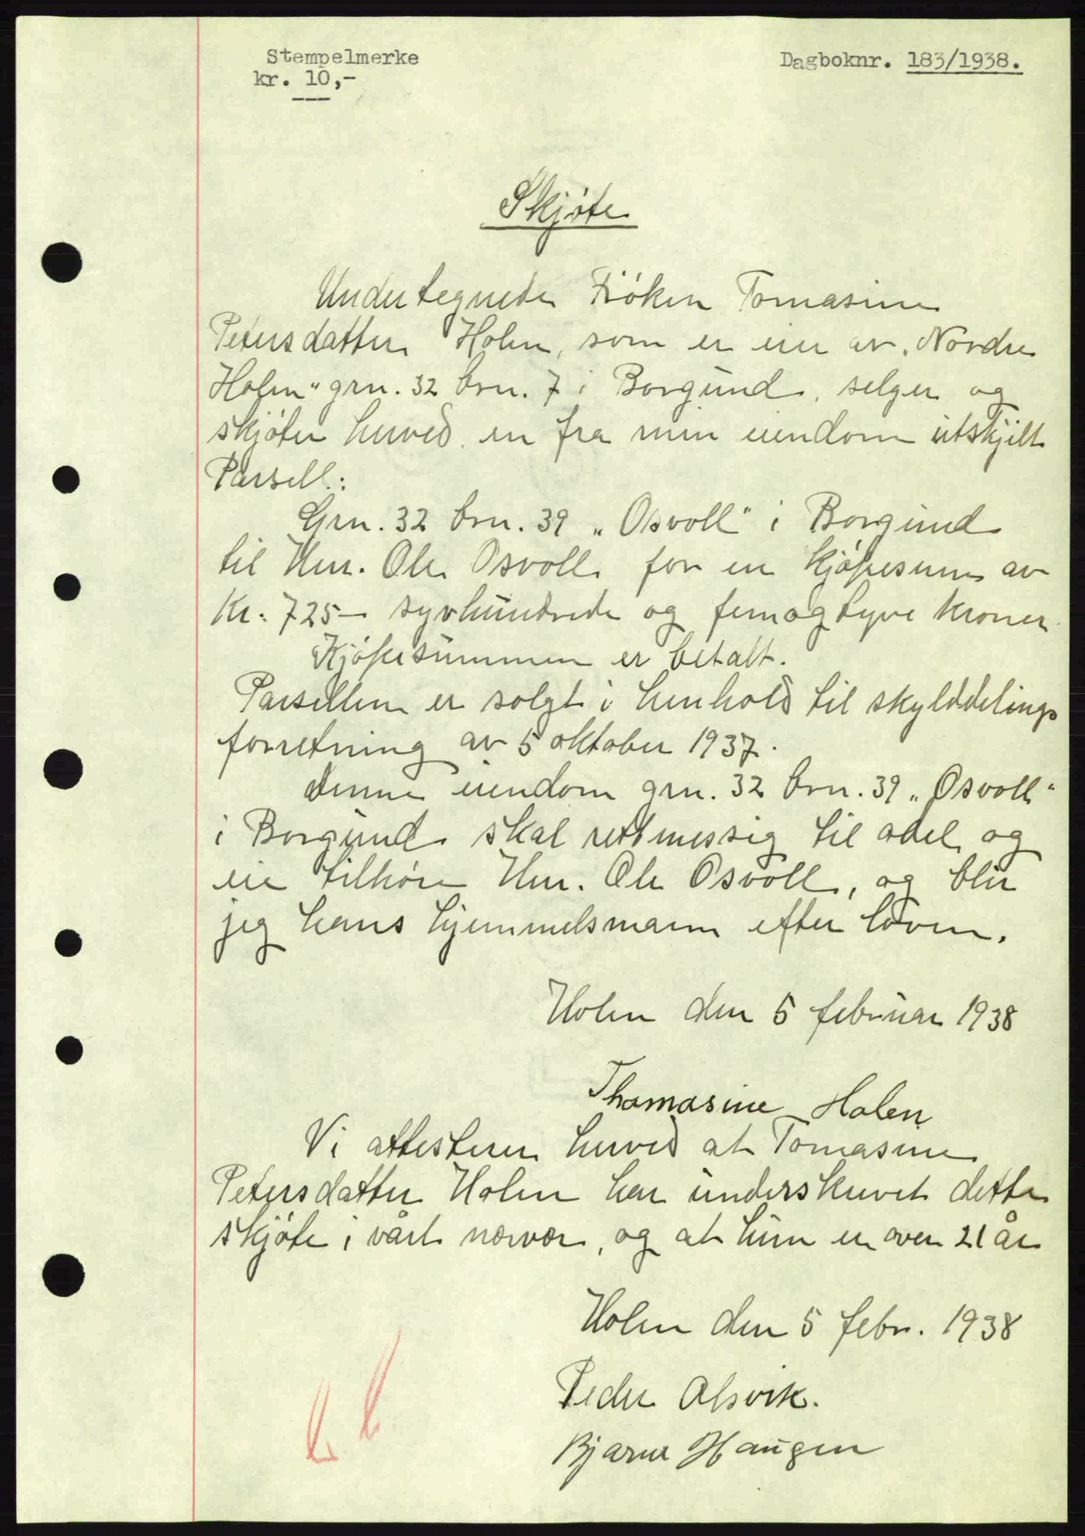 Stempelmerke
kr. 10,-
Dagboknr. 183/1938.
Skjøte
Undertegnede Frøken Tomasine
Petersdatter Holen, som er eier av „Nordre
Holen" grn. 32 brn. 7 i Borgund, selger og
skjøter herved en fra min eiendom utskjilt
Parsell:
Grn. 32 brn. 39 „Osvoll" i Borgund
til Herr. Ole Osvoll for en kjøpesum av
Kr: 725— syvhundrede og femogtyve kroner
Kjøpesummen er betalt.
Parsellen er solgt i henhold til skylddelings
forretning av 5 oktober 1937.
Denne eiendom grn. 32 brn. 39 „Osvoll"
i Borgund skal rettmessig til odel og
eie tilhøre Herr. Ole Osvoll, og blir
jeg hans hjemmelsmann efter loven.
Holen den 5 februar 1938
Thomasine Holen
Vi attesterer herved at Tomasine
Petersdatter Holen har underskrevet dette
skjøte i vårt nærvær, og at hun er over 21 år
Holen den 5 febr. 1938
Peder Alsvik.
Bjarne Haugen